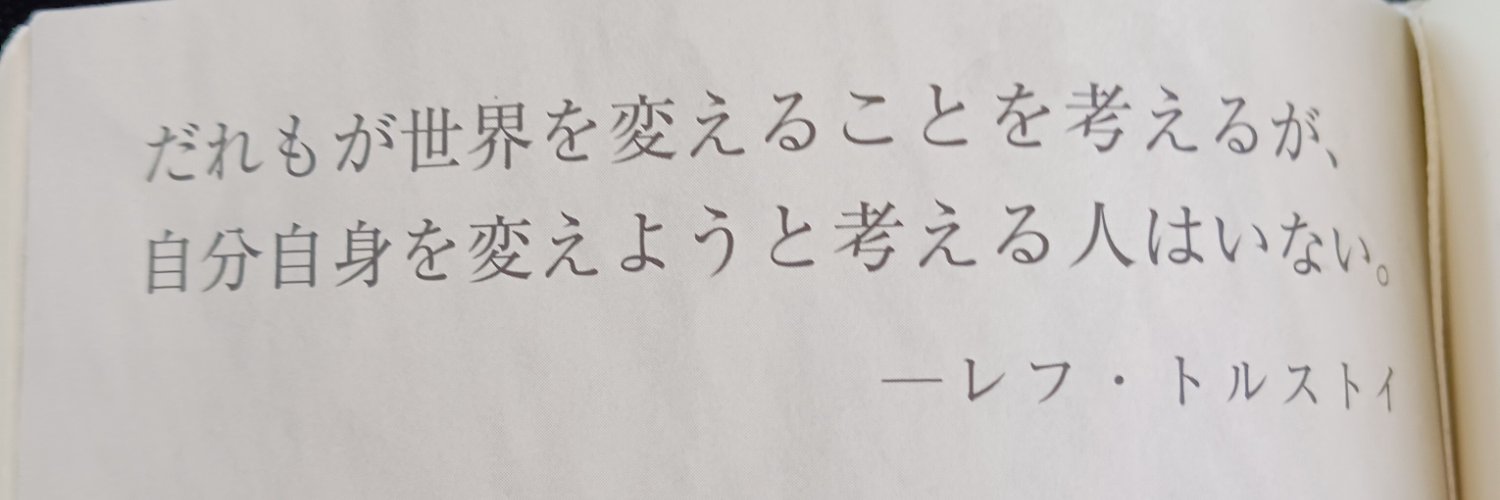 だれもが世界を変えることを考えるが、
自分自身を変えようと考える人はいない。
―レフ・トルストイ